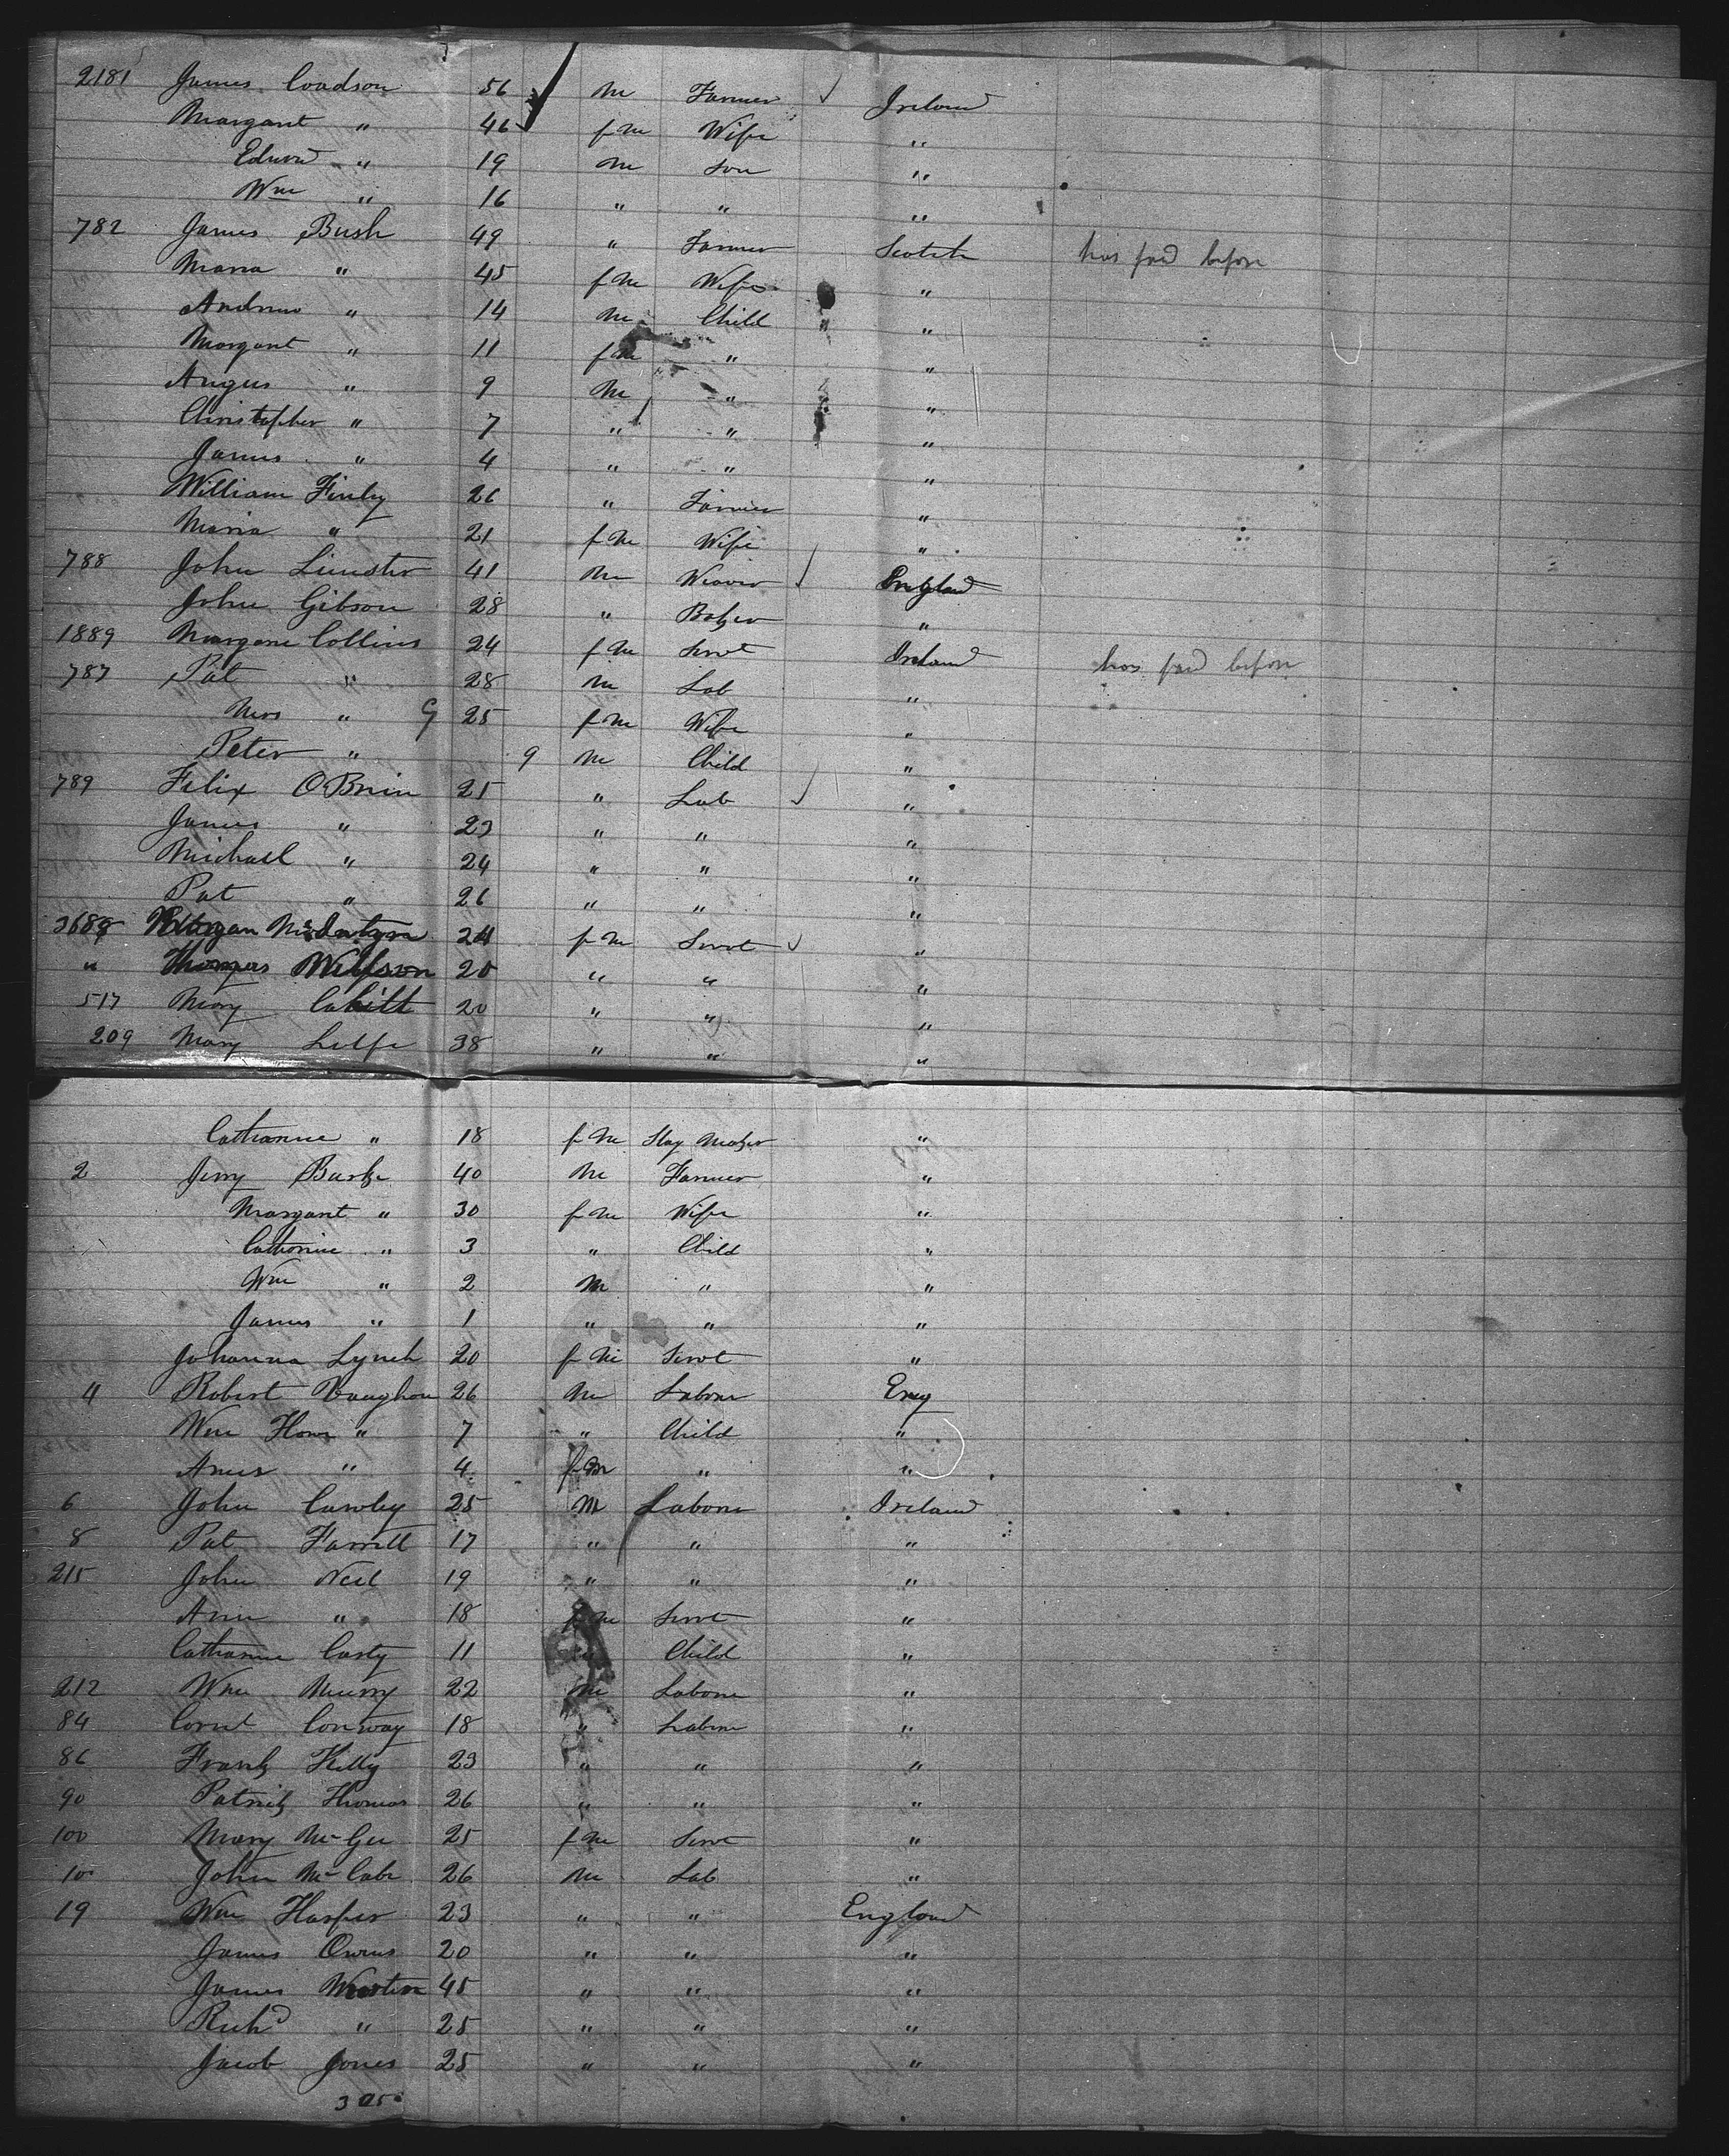 2181 James Coadson 56 m Farmer ✓ Ireland
Margant " 46 f m Wife "
Edward " 19 m Son "
Wm " 16 " " "
782 James Bush 49 " Farmer Scotch has paid before
Maria " 45 f m Wife "
Andrew " 14 m Child "
Margant " 11 f m " "
Angus " 9 m " "
Christopher " 7 " " "
James " 4 " " "
William Finly 26 " Farmer "
Maria " 21 f m Wife "
788 John 41 m Weaver ✓ England
John Gibson 28 " Baker "
1889 Collins 24 f m Servt Ireland has paid before
787 Pat " 28 m Lab "
Mrs " 25 f m Wife "
Peter " 9 m Child "
789 Felix OBrien 25 " Lab ✓ "
James " 23 " " "
Michael " 24 " " "
Pat " 26 " " "
McIntyre f m Servt ✓ "
" Thomas 20 " " "
517 Mary Cahill 20 " " "
209 Mary 38 " " "
Catharine " 18 f m Stay Maker "
2 Jerry Burke 40 m Farmer "
Margant " 30 f m Wife "
Catharine " 3 " Child "
Wm " 2 m " "
James " 1 " " "
Johanna Lynch 20 f m Servt "
4 Robert Vaughan 26 m Labour Eng
Wm " 7 " Child "
" 4 f m " "
6 John Cawley 25 m Labour Ireland
8 Pat Farrell 17 " " "
215 John Neil 19 " " "
Ann " 18 f m Servt "
Catharine Casty 11 " Child "
212 Wm Murry 22 m Labour "
84 Conway 18 " Labour "
86 Frank Kelly 23 " " "
90 Patrick Thomas 26 " " "
100 Mary McGee 25 f m Servt "
10 John McCabe 26 m Lab "
19 Wm Harper 23 " " England
James Owens 20 " " "
James 45 " " "
Richd " 25 " " "
Jacob Jones 25 " " "
305